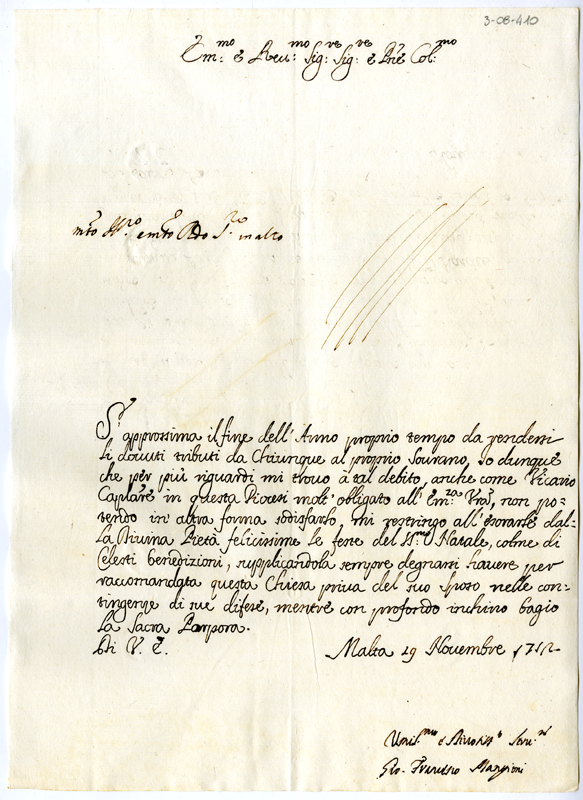 3-08-410
Em:mo e Reu:mo Sig:re Sig:re e Prē Col:mo
S'approssima il fine dell'Anno proprio tempo da rendersi
li douuti tributi da Chiunque al proprio Sourano, Io dunque
che per più riguardi mi trouo à tal debito, anche come Vicario
Caplāre in questa Diocesi molt'obligato all'Em:za Vrā, non po-
tendo in altra forma sodisfarlo, mi restringo all'esorarle dal-
la Diuina Pietà felicissime le feste del S:mo Natale, colme di
Celesti benedizioni, supplicandola sempre degnarsi hauere per
raccomandata questa Chiesa priua del suo sposo nelle con-
tingenze di sue difese, mentre con profondo inchino bagio
la Sacra Porpora.
Di V. E. Malta 19 Novembre
Umil:mo e Seru:re
Gio. Francesco